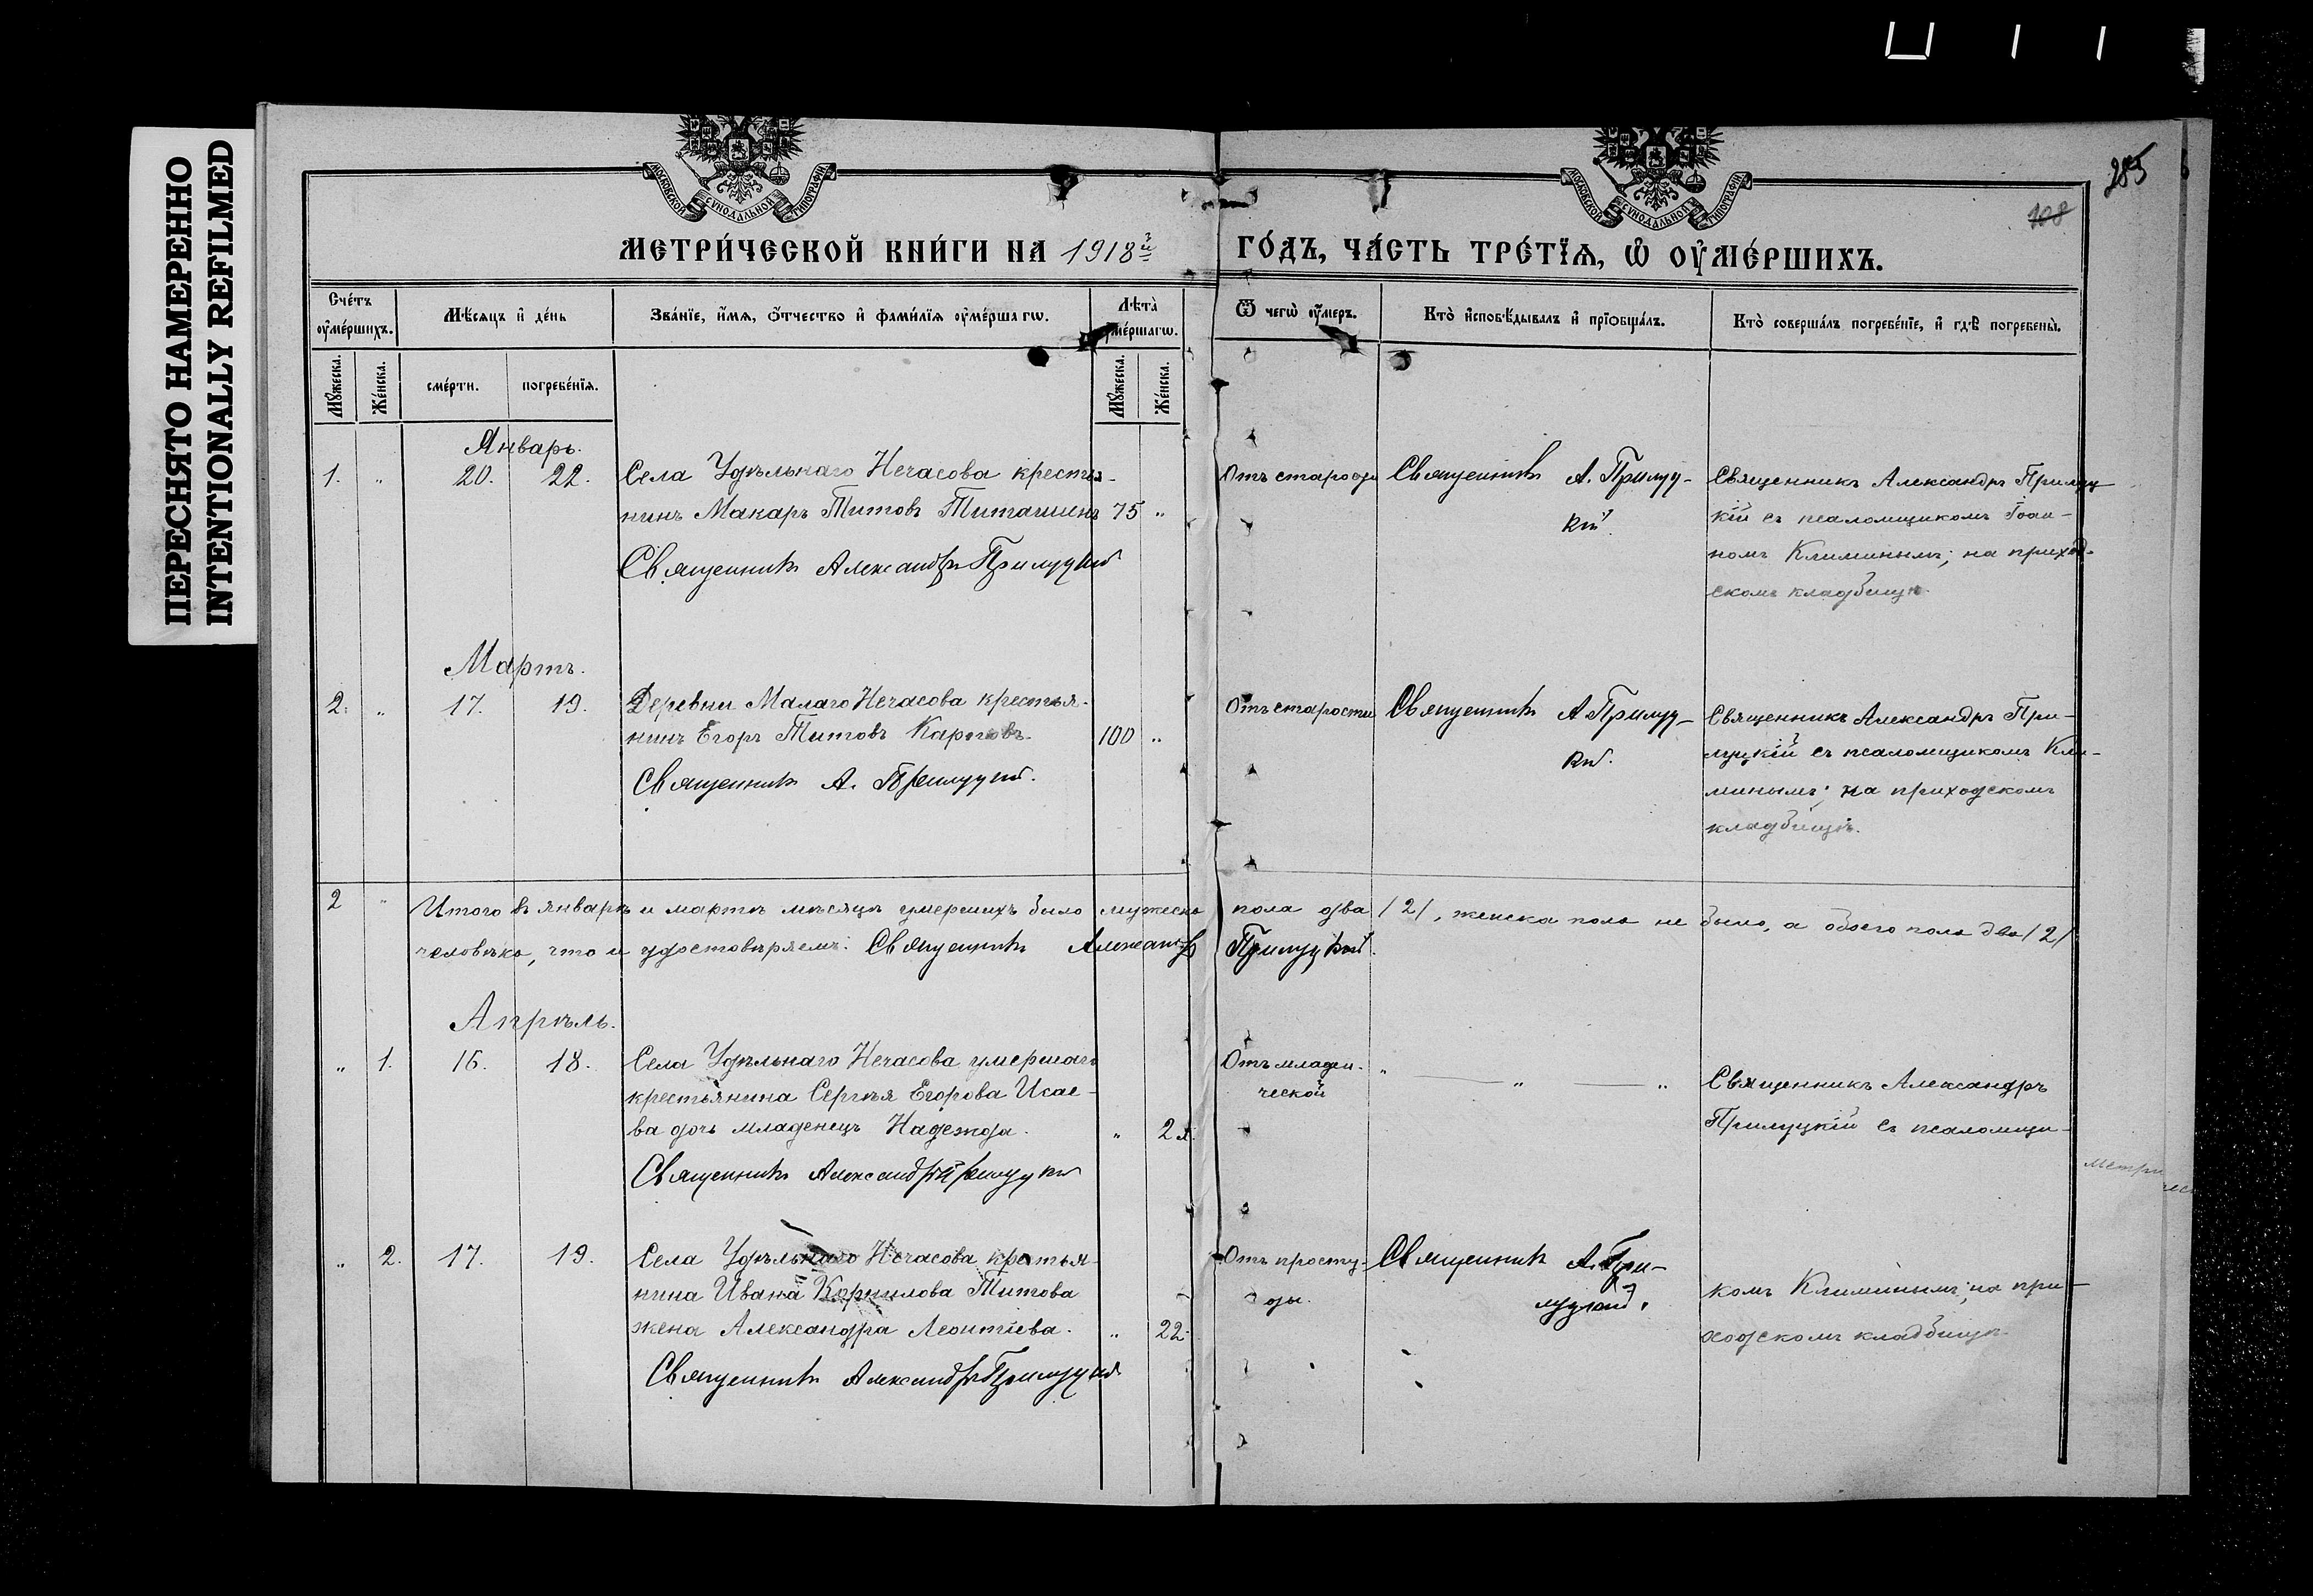 ПЕРЕСНЯТО НАМЕРЕННО
INTENTIONALLY REFILMED
МОСКОВСКОЙ СѴНОДАЛЬНОЙ ТИПОГРАФІИ
МОСКОВСКОЙ СѴНОДАЛЬНОЙ ТИПОГРАФІИ
285
108
МЕТРИ́ЧЕСКОЙ КНИ́ГИ НА 1918й
ГО́ДЪ, ЧА́СТЬ ТРЕ́ТЇѦ, Ѡ҆ ОУ҆МЕ́РШИХЪ.
Сче́тъ оу҆ме́ршихъ.
Мѣ́сяцъ и҆ де́нь
Зва́нїе, и҆́мѧ, ѻ҆́тчество и҆ фами́лїѧ оу҆ме́ршагѡ.
Лѣ́та оу҆ме́ршагѡ.
Ѿ чегѡ̀ оу҆́меръ.
Кто̀ и҆сповѣ́дывалъ и҆ прїѻбща́лъ.
Кто̀ соверша́лъ погребе́нїе, и҆ гдѣ̀ погребены̀.
Мꙋ́жеска.
Же́нска.
сме́рти.
погребе́нїѧ.
Мꙋ́жеска.
Же́нска.
Январь.
1. " 20. 22. Села Удѣльнаго Нечасова крестья-
нинъ Макаръ Титовъ 75 "
Священникъ Александръ Прилуцкій
Отъ старости
Священникъ А. Прилуц-
кій.
Священникъ Александръ Прилуц-
кій съ псаломщикомъ Іоан-
номъ Климинымъ; на приход-
скомъ кладбищѣ.
Мартъ.
2. " 17. 19. Деревни Малаго Нечасова крестья-
нинъ Егоръ Титовъ Карповъ. 100 "
Священникъ А. Прилуцкій.
Отъ старости
Священникъ А Прилуц-
кій.
Священникъ Александръ При-
луцкій съ псаломщикомъ Кли-
минымъ; на приходскомъ
кладбищѣ.
2 " Итого въ январѣ и мартѣ мѣсяцѣ умершихъ было мужеска пола два /2/, женска пола не было, а обоего пола два /2/
человѣка, что и удостовѣряемъ: Священникъ Александръ Прилуцкій.
Апрѣль.
" 1. 16. 18. Села Удѣльнаго Нечасова умершаго
крестьянина Сергѣя Егорова Исае-
ва дочь младенецъ Надежда. " 2
Священникъ Александръ Прилуцкій
Отъ младен-
ческой
" — " — "
Священникъ Александръ
Прилуцкій съ псаломщи-
" 2. 17. 19. Села Удѣльнаго Нечасова крестья-
нина Ивана Корнилова Титова
жена Александра Леонтіева. " 22.
Священникъ Александръ Прилуцкій
Отъ просту-
ды.
Священникъ А. При-
луцкій.
комъ Климинымъ; на при-
ходскомъ кладбищѣ.